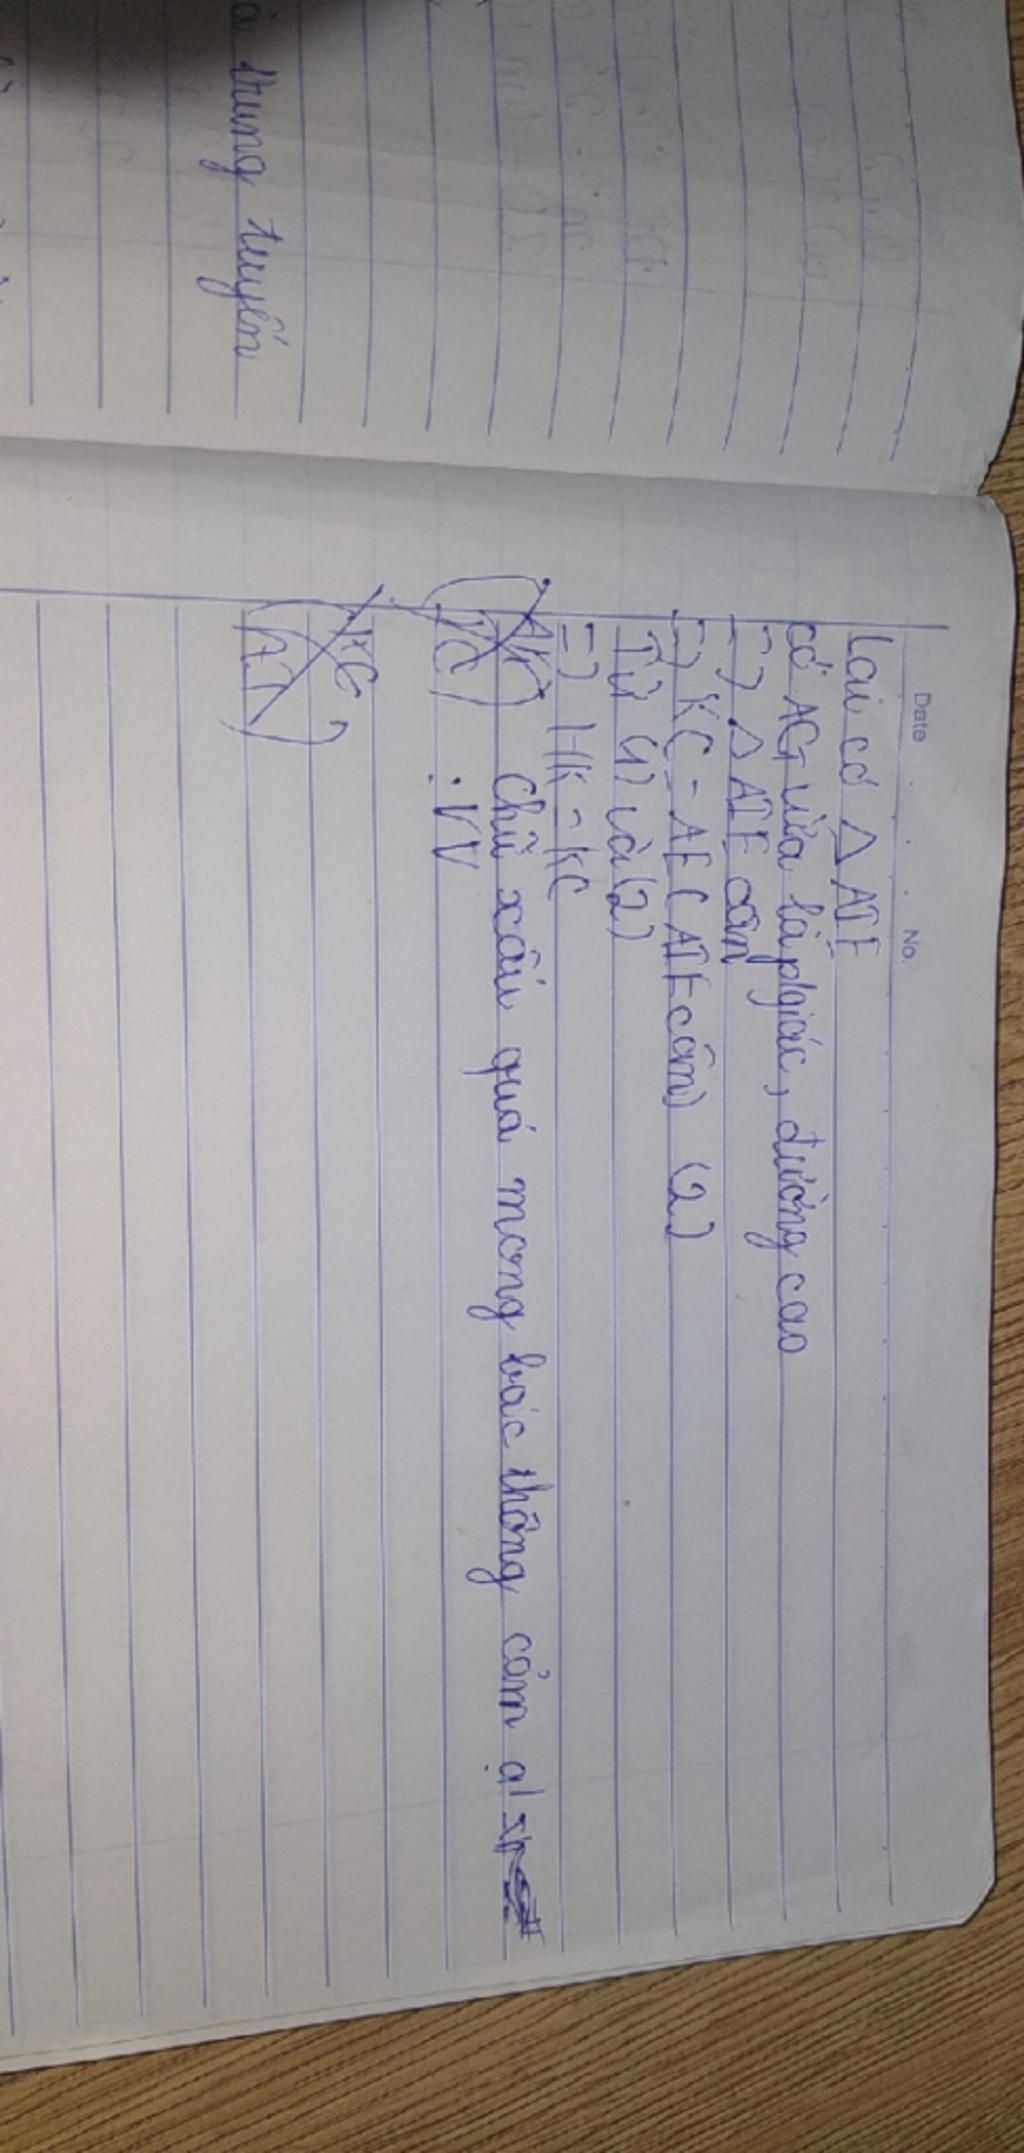 Date No.
Lại có Δ AIE
có AG vừa là p/giác, đường cao
=) Δ AIE cân
=) KC = AE (AIE cân) (2)
Từ (1) và (2)
=) HK = KC
Chữ xấu quá mong bác thông cảm ạ!
: VV
trung tuyến